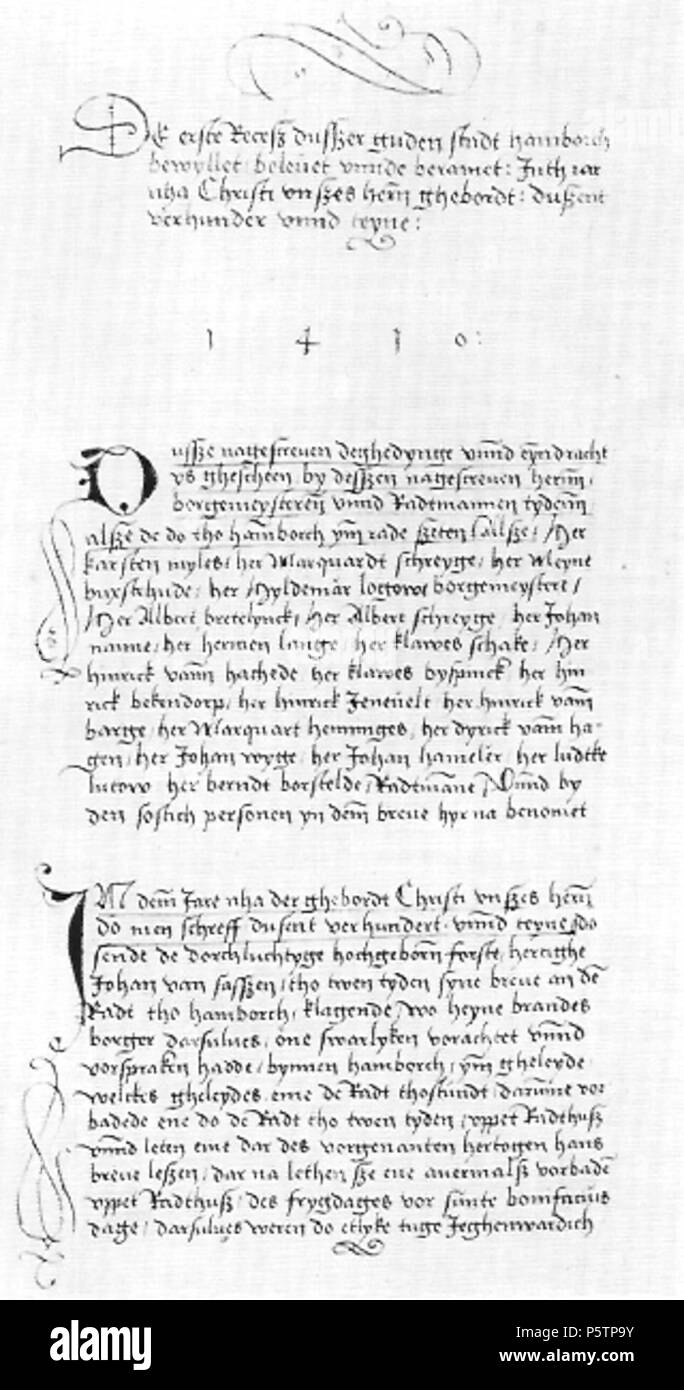 De erste Recesz dusszer guden stadt hamborch
bewyllet beleuet vnnde beramet: Inth iar
nha Christi vnszes hern ghebordt: duszent
verhunder vnnd teyne:
1 4 1 0:
Dussze nagescreuen deghedynge vnnd eyndracht
ys ghescheen by desszen nagescreuen herrnn,
borgemeysteren vnnd Radtmannen tydenn
alsze de do tho hamborch ynn rade szeten Her
karsten myles, her Marquardt schreyge, her Meyne
buxstehude, her Hyldemar lopow borgemeystere,
Her Albert bretelynck, Her Albert schreyge, her Johan
nanne, her hermen lange, her klawes schake, Her
hinrick vann hachede her klawes byspinck her hin
rick bekendorp, her hinrick Jeneuelt her hinrick vann
barge, her Marquart henninges, her dyrick vann ha-
gen, her Johan wyge, her Johan hameler, her ludtke
lutow her berndt borstelde, Radtmane, Vnnd by
den sostich personen yn dem breue hyr na benomet
IN dem Jare nha der ghebordt Christi vnszes hern
do men schreff dusent verhundert vnnd teyne do
sende de dorchluchtyge hochgeborn forste, hertighe
Johan van sasszen, tho twen tyden syne breue an de
Radt tho hamborch, klagende, wo heyne brandes
borger darsulues, one swarlyken vorachtet vnnd
vorspraken hadde, bynnen hamborch, ynn gheleyde
welckes gheleydes eme de Radt thostundt, darumme vor
badede ene do de Radt tho twen tyden, vppet Radthusz
vnnd leten eme dar des vorgenanten hertogen hans
breue leszen, dar na lethen sze ene auermalsz vorbaden
vppet Radthusz, des frygdages vor sunte bonifacius
dage, darsulues weren do etlyke tuge Jeghenwardich
alamy
Image ID: P5TP9Y
www.alamy.com